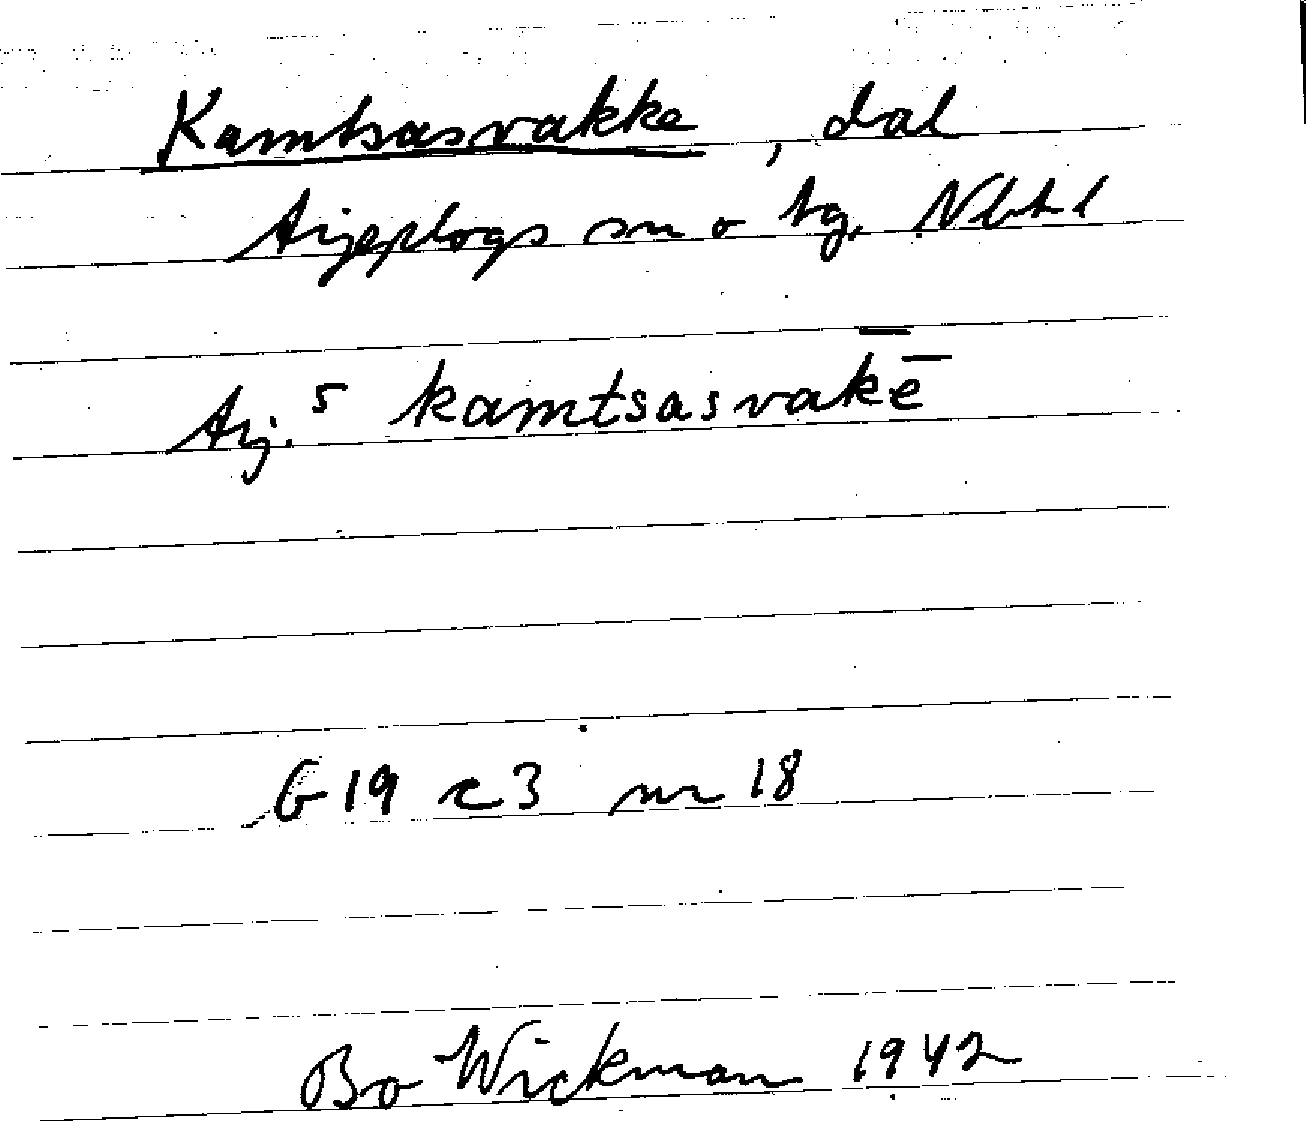 Kamtsasvakke, dal
Arjeplogs sn o tg. Nbtl
Arj.⁵ kamtsasvak̄ē
G19 c3 nr 18
Bo Wickman 1942